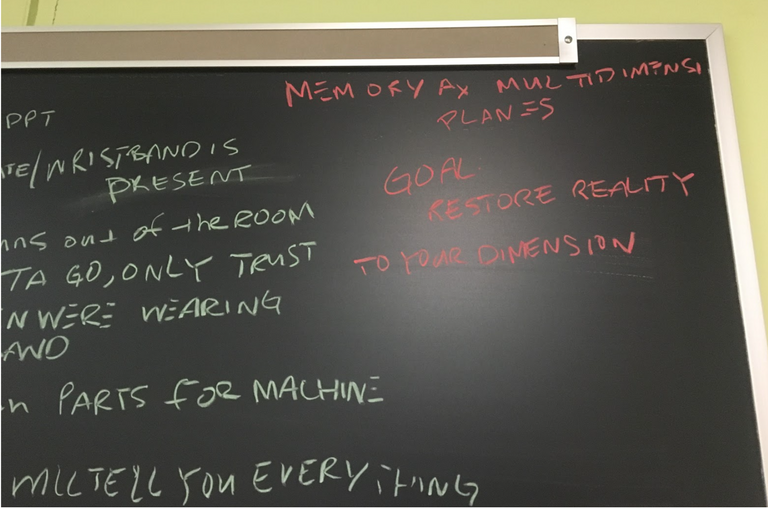 PPT
ATE/WRISTBAND IS
PRESENT
out of the ROOM
TA GO, ONLY TRUST
N WERE WEARING
AND
n PARTS FOR MACHINE
WILL TELL YOU EVERYTHING
MEMORY AX MULTIDIMENSI
PLANES
GOAL
RESTORE REALITY
TO YOUR DIMENSION